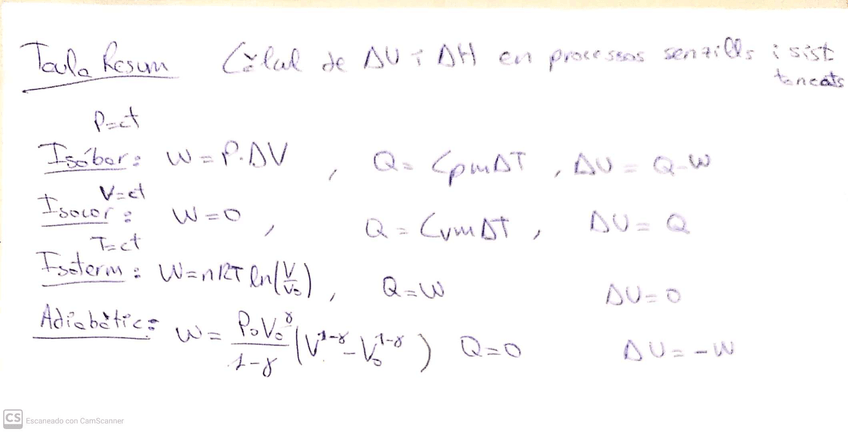 Taula Resum Càlcul de ΔU i ΔH en processos senzills i sist tancats
P=ct
Isóbar: W = P·ΔV , Q = CpmΔT , ΔU = Q-W
V=ct
Isocor: W=0 , Q = CvmΔT , ΔU = Q
T=ct
Isoterm: W=nRT ln(V/V₀) , Q=W ΔU=0
Adiabàtic: W = P₀V₀^γ/1-γ (V^1-γ - V₀^1-γ) Q=0 ΔU=-W
CS Escaneado con CamScanner